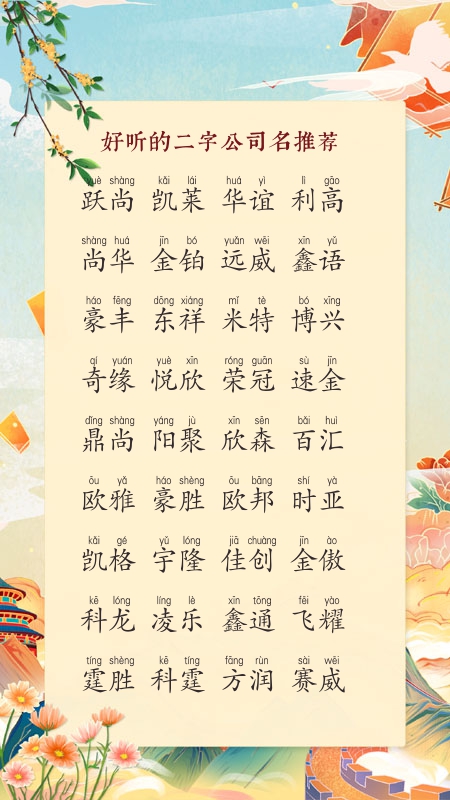 好听的二字公司名推荐
yuè shàng kǎi lái huá yì lì gāo
跃尚 凯莱 华谊 利高
shàng huá jīn bó yuǎn wēi xīn yǔ
尚华 金铂 远威 鑫语
háo fēng dōng xiáng mǐ tè bó xīng
豪丰 东祥 米特 博兴
qí yuán yuè xīn róng guān sù jīn
奇缘 悦欣 荣冠 速金
dǐng shàng yáng jù xīn sēn bǎi huì
鼎尚 阳聚 欣森 百汇
ōu yǎ háo shèng ōu bāng shí yà
欧雅 豪胜 欧邦 时亚
kǎi gé yǔ lóng jiā chuàng jīn ào
凯格 宇隆 佳创 金傲
kē lóng líng lè xīn tōng fēi yào
科龙 凌乐 鑫通 飞耀
tíng shèng kē tíng fāng rùn sài wēi
霆胜 科霆 方润 赛威